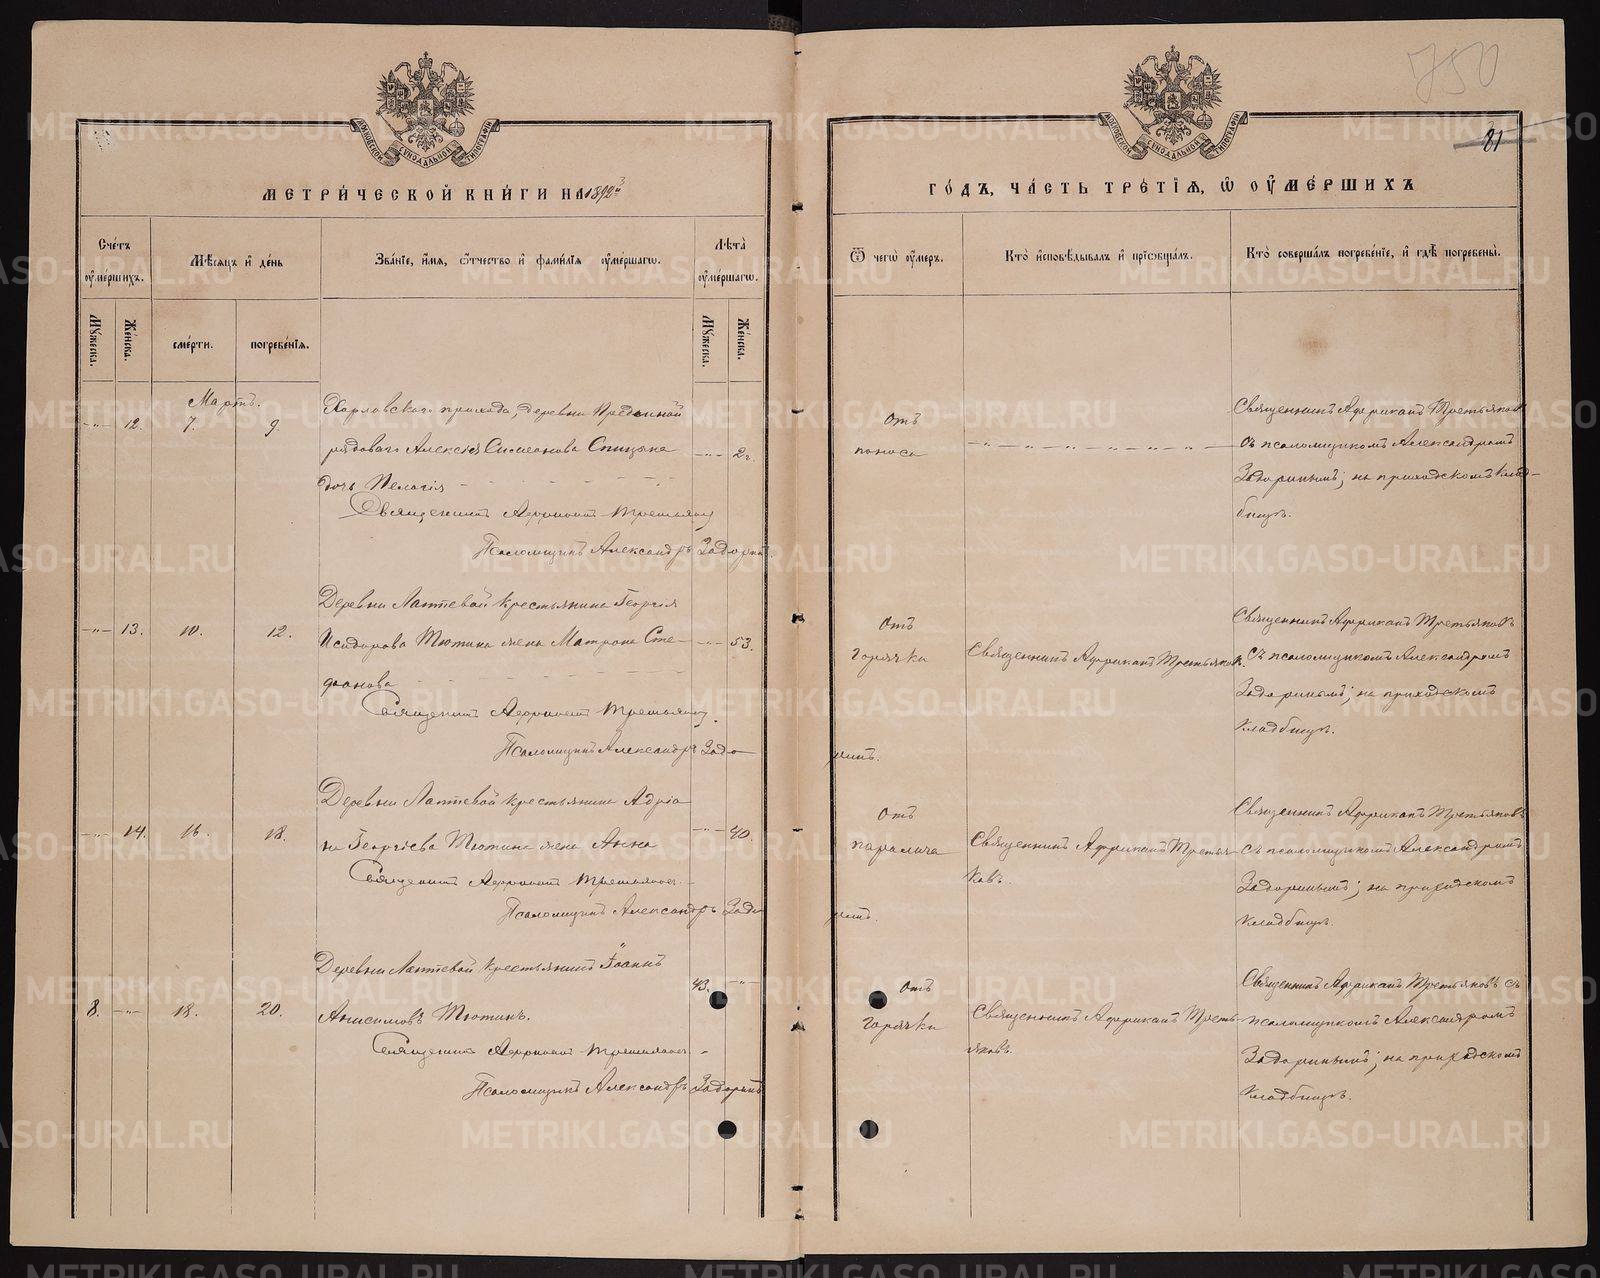 750
81
МЕТРИ́ЧЕСКОЙ КНИ́ГИ НА 1892 3
ГО́ДЪ, ЧА́СТЬ ТРЕ́ТІѦ, Ѿ ОУМЕ́РШИХЪ
МОСКОВСКОЙ СѴНОДАЛЬНОЙ ТИПОГРАФІИ
МОСКОВСКОЙ СѴНОДАЛЬНОЙ ТИПОГРАФІИ
Сче́тъ оуме́ршихъ.
Мѣ́сѧцъ и҆ де́нь
Зва́нїе, и҆́мѧ, ѻ҆́тчество и҆ фами́лїѧ оуме́ршагѡ.
Лѣ́та оуме́ршагѡ.
Ѿ чегѡ̀ оу́меръ.
Кто̀ и҆сповѣ́дывалъ и҆ прїѡбща́лъ.
Кто̀ соверша́лъ погребе́нїе, и҆ гдѣ̀ погребены̀.
Мꙋ́жеска.
Же́нска.
сме́рти.
погребе́нїѧ.
Мꙋ́жеска.
Же́нска.
Мартъ.
-"- 12. 7. 9.
Харловскаго прихода, деревни
рядоваго Алексѣя Симеонова Спицына -"- 2 г.
дочь Пелагія
Священникъ Африканъ Третьяковъ
Псаломщикъ Александръ Задоринъ
Отъ
поноса
Священникъ Африканъ Третьяковъ
съ псаломщикомъ Александромъ
Задоринымъ; на приходскомъ клад-
бищѣ.
-"- 13. 10. 12.
Деревни Лаптевой крестьянина Георгія
Исидорова Тютина жена Матрона Сте- -"- 53.
фанова
Священникъ Африканъ Третьяковъ.
Псаломщикъ Александръ Задо-
ринъ.
Отъ
горячки
Священникъ Африканъ Третьяковъ.
Священникъ Африканъ Третьяковъ
съ псаломщикомъ Александромъ
Задоринымъ; на приходскомъ
кладбищѣ.
-"- 14. 16. 18.
Деревни Лаптевой крестьянина Адріа
на Георгіева Тютина жена Анна -"- 40.
Священникъ Африканъ Третьяковъ.
Псаломщикъ Александръ Задо-
ринъ.
Отъ
паралича
Священникъ Африканъ Третья-
ковъ.
Священникъ Африканъ Третьяковъ
съ псаломщикомъ Александромъ
Задоринымъ; на приходскомъ
кладбищѣ.
8. -"- 18. 20.
Деревни Лаптевой крестьянинъ Іоаннъ 43. -"-
Анисимовъ Тютинъ.
Священникъ Африканъ Третьяковъ.
Псаломщикъ Александръ Задоринъ
Отъ
горячки
Священникъ Африканъ Треть-
яковъ.
Священникъ Африканъ Третьяковъ съ
псаломщикомъ Александромъ
Задоринымъ; на приходскомъ
кладбищѣ.
METRIKI.GASO-URAL.RU